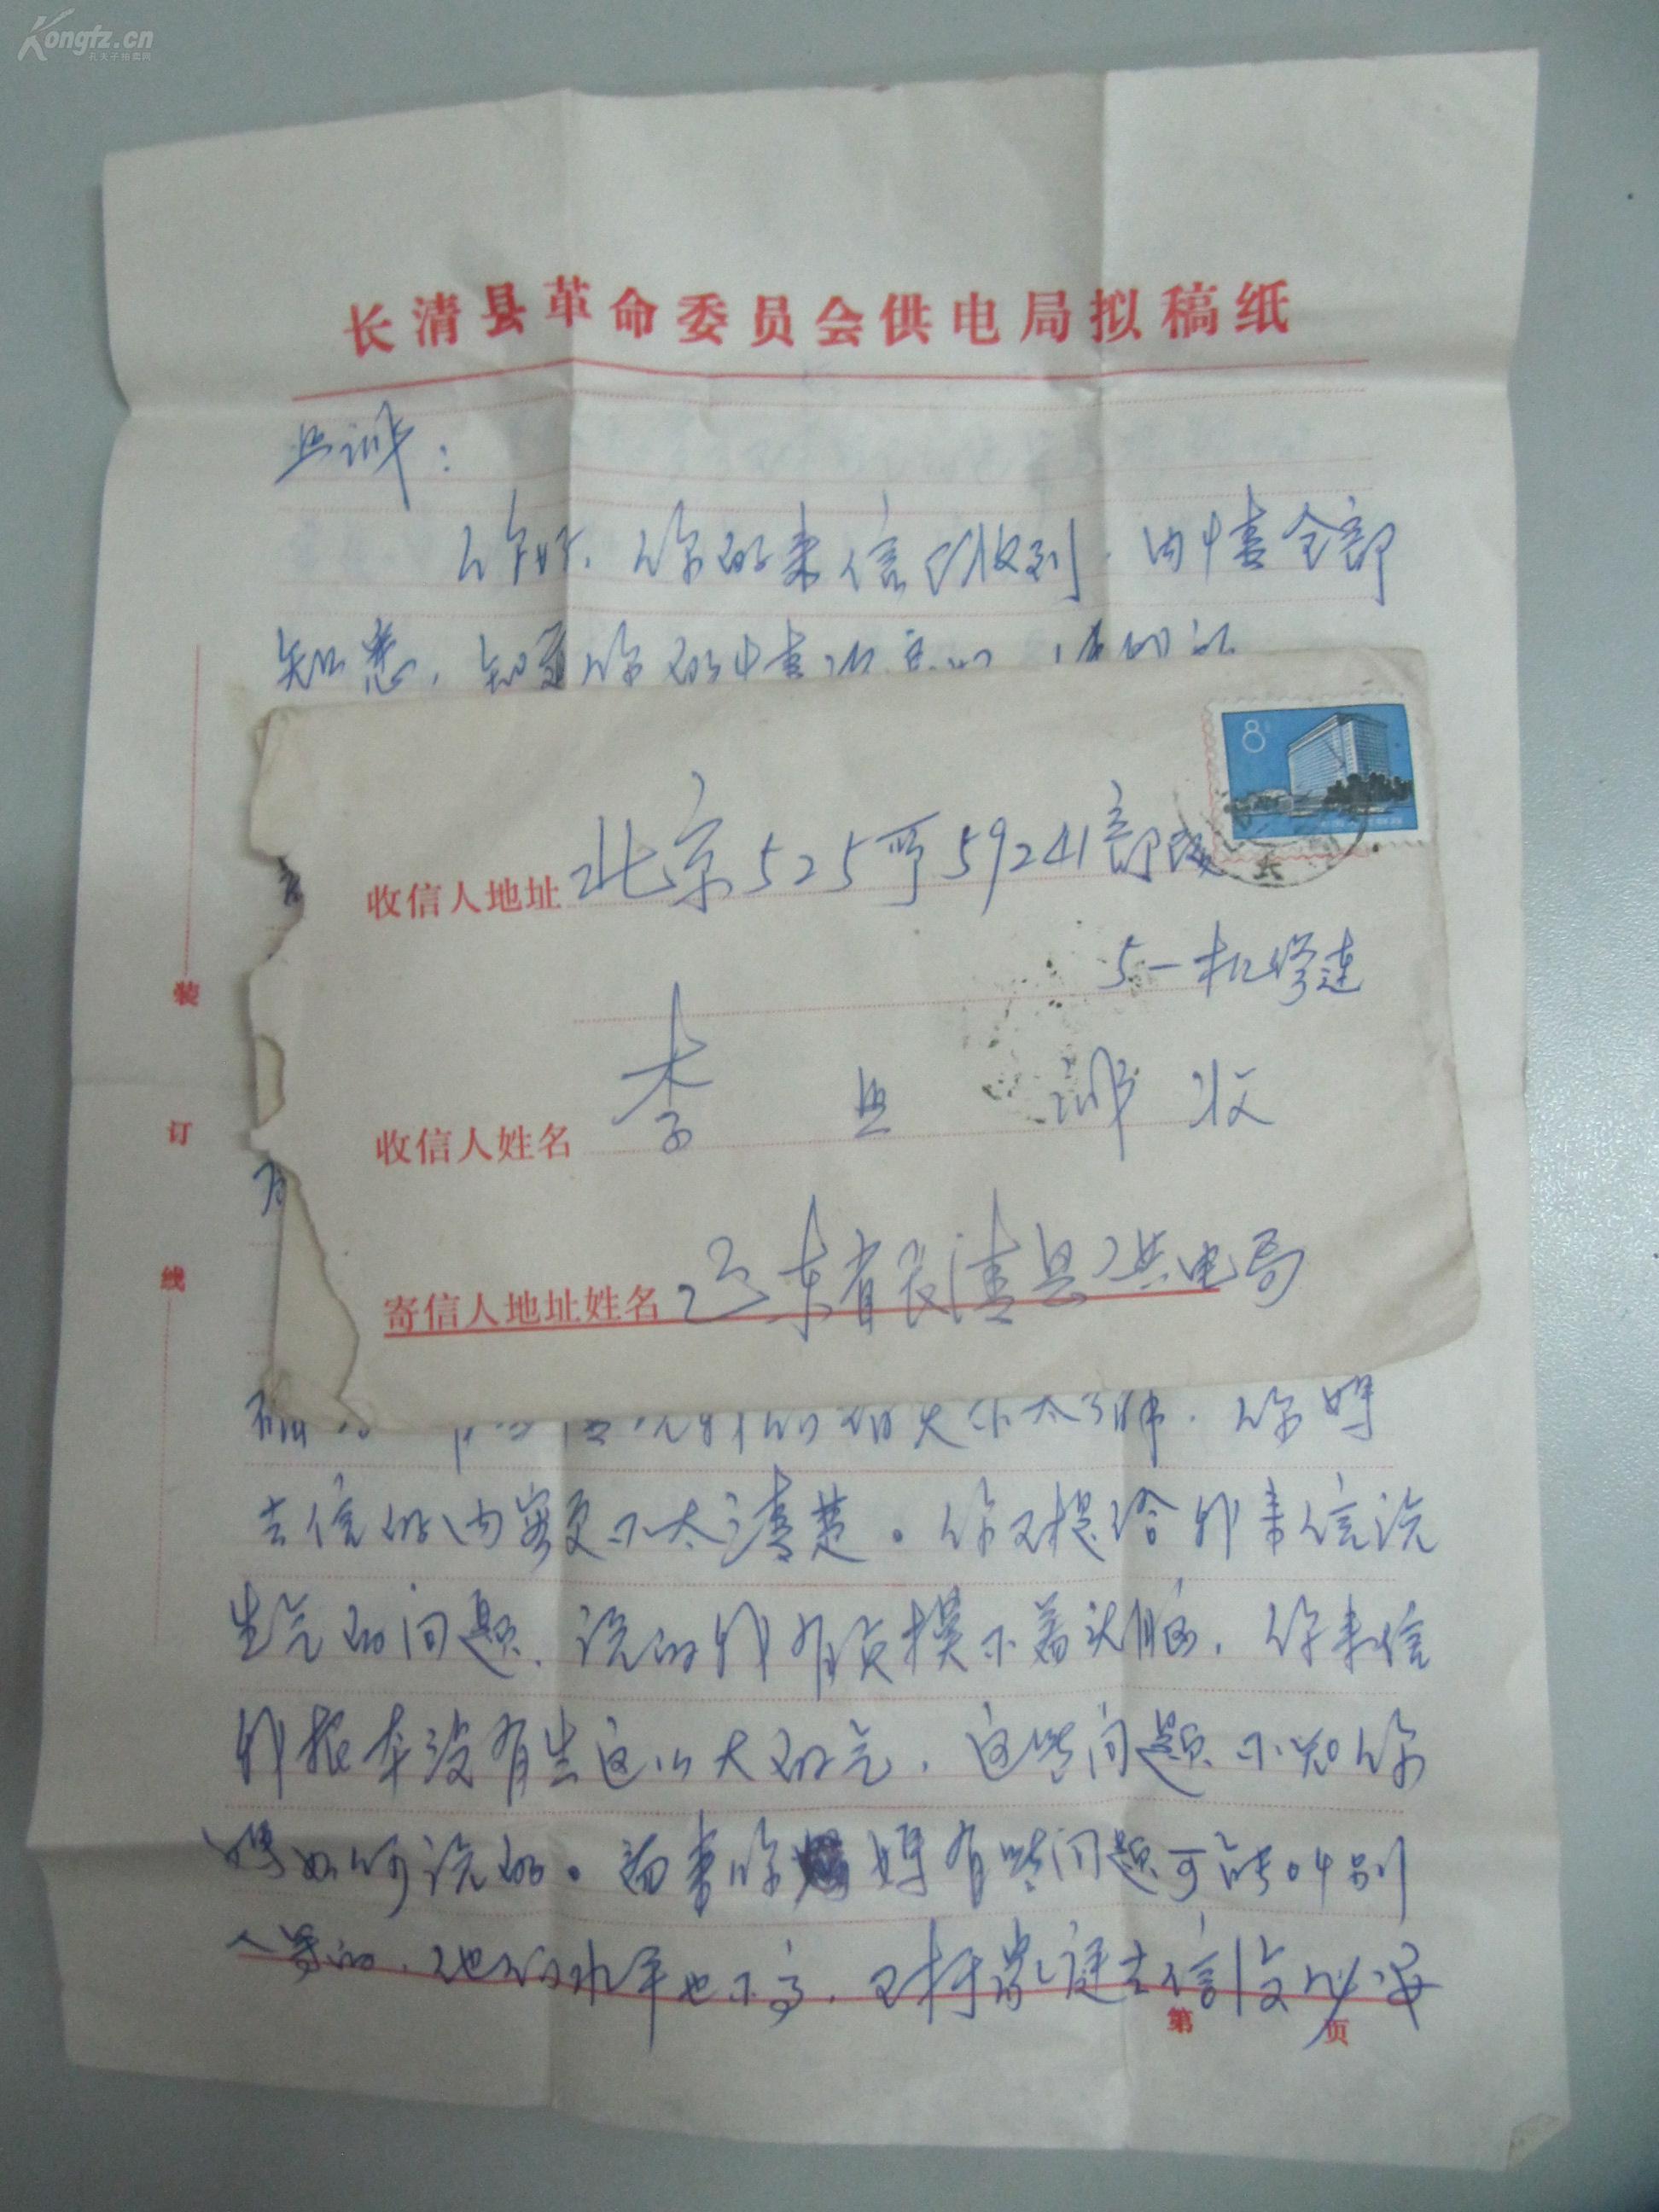 Kongfz.cn
孔夫子拍卖网
长清县革命委员会供电局拟稿纸
你好,你的来信已收到,内情全部
知悉,知道你的情况
8
收信人地址 北京525号59241部队
5一机修连
收信人姓名 李 收
寄信人地址姓名 山东省长清县供电局
装
订
线
不太了解,你妈
去信的内容更不太清楚。你又提给我来信说
生气的问题,说的我有点摸不着头脑,你来信
我根本没有生这么大的气,这些问题不知你
妈如何说的。看来你妈有些问题可能叫别
人写的,他的水平也不高,又将家庭去信没必要
第 页